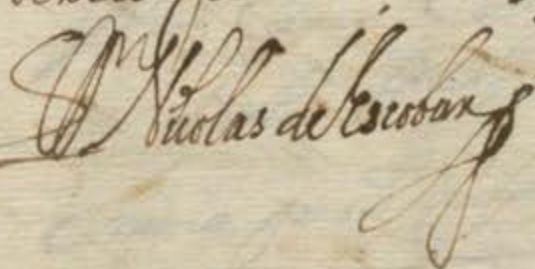 Nicolas de Escobar